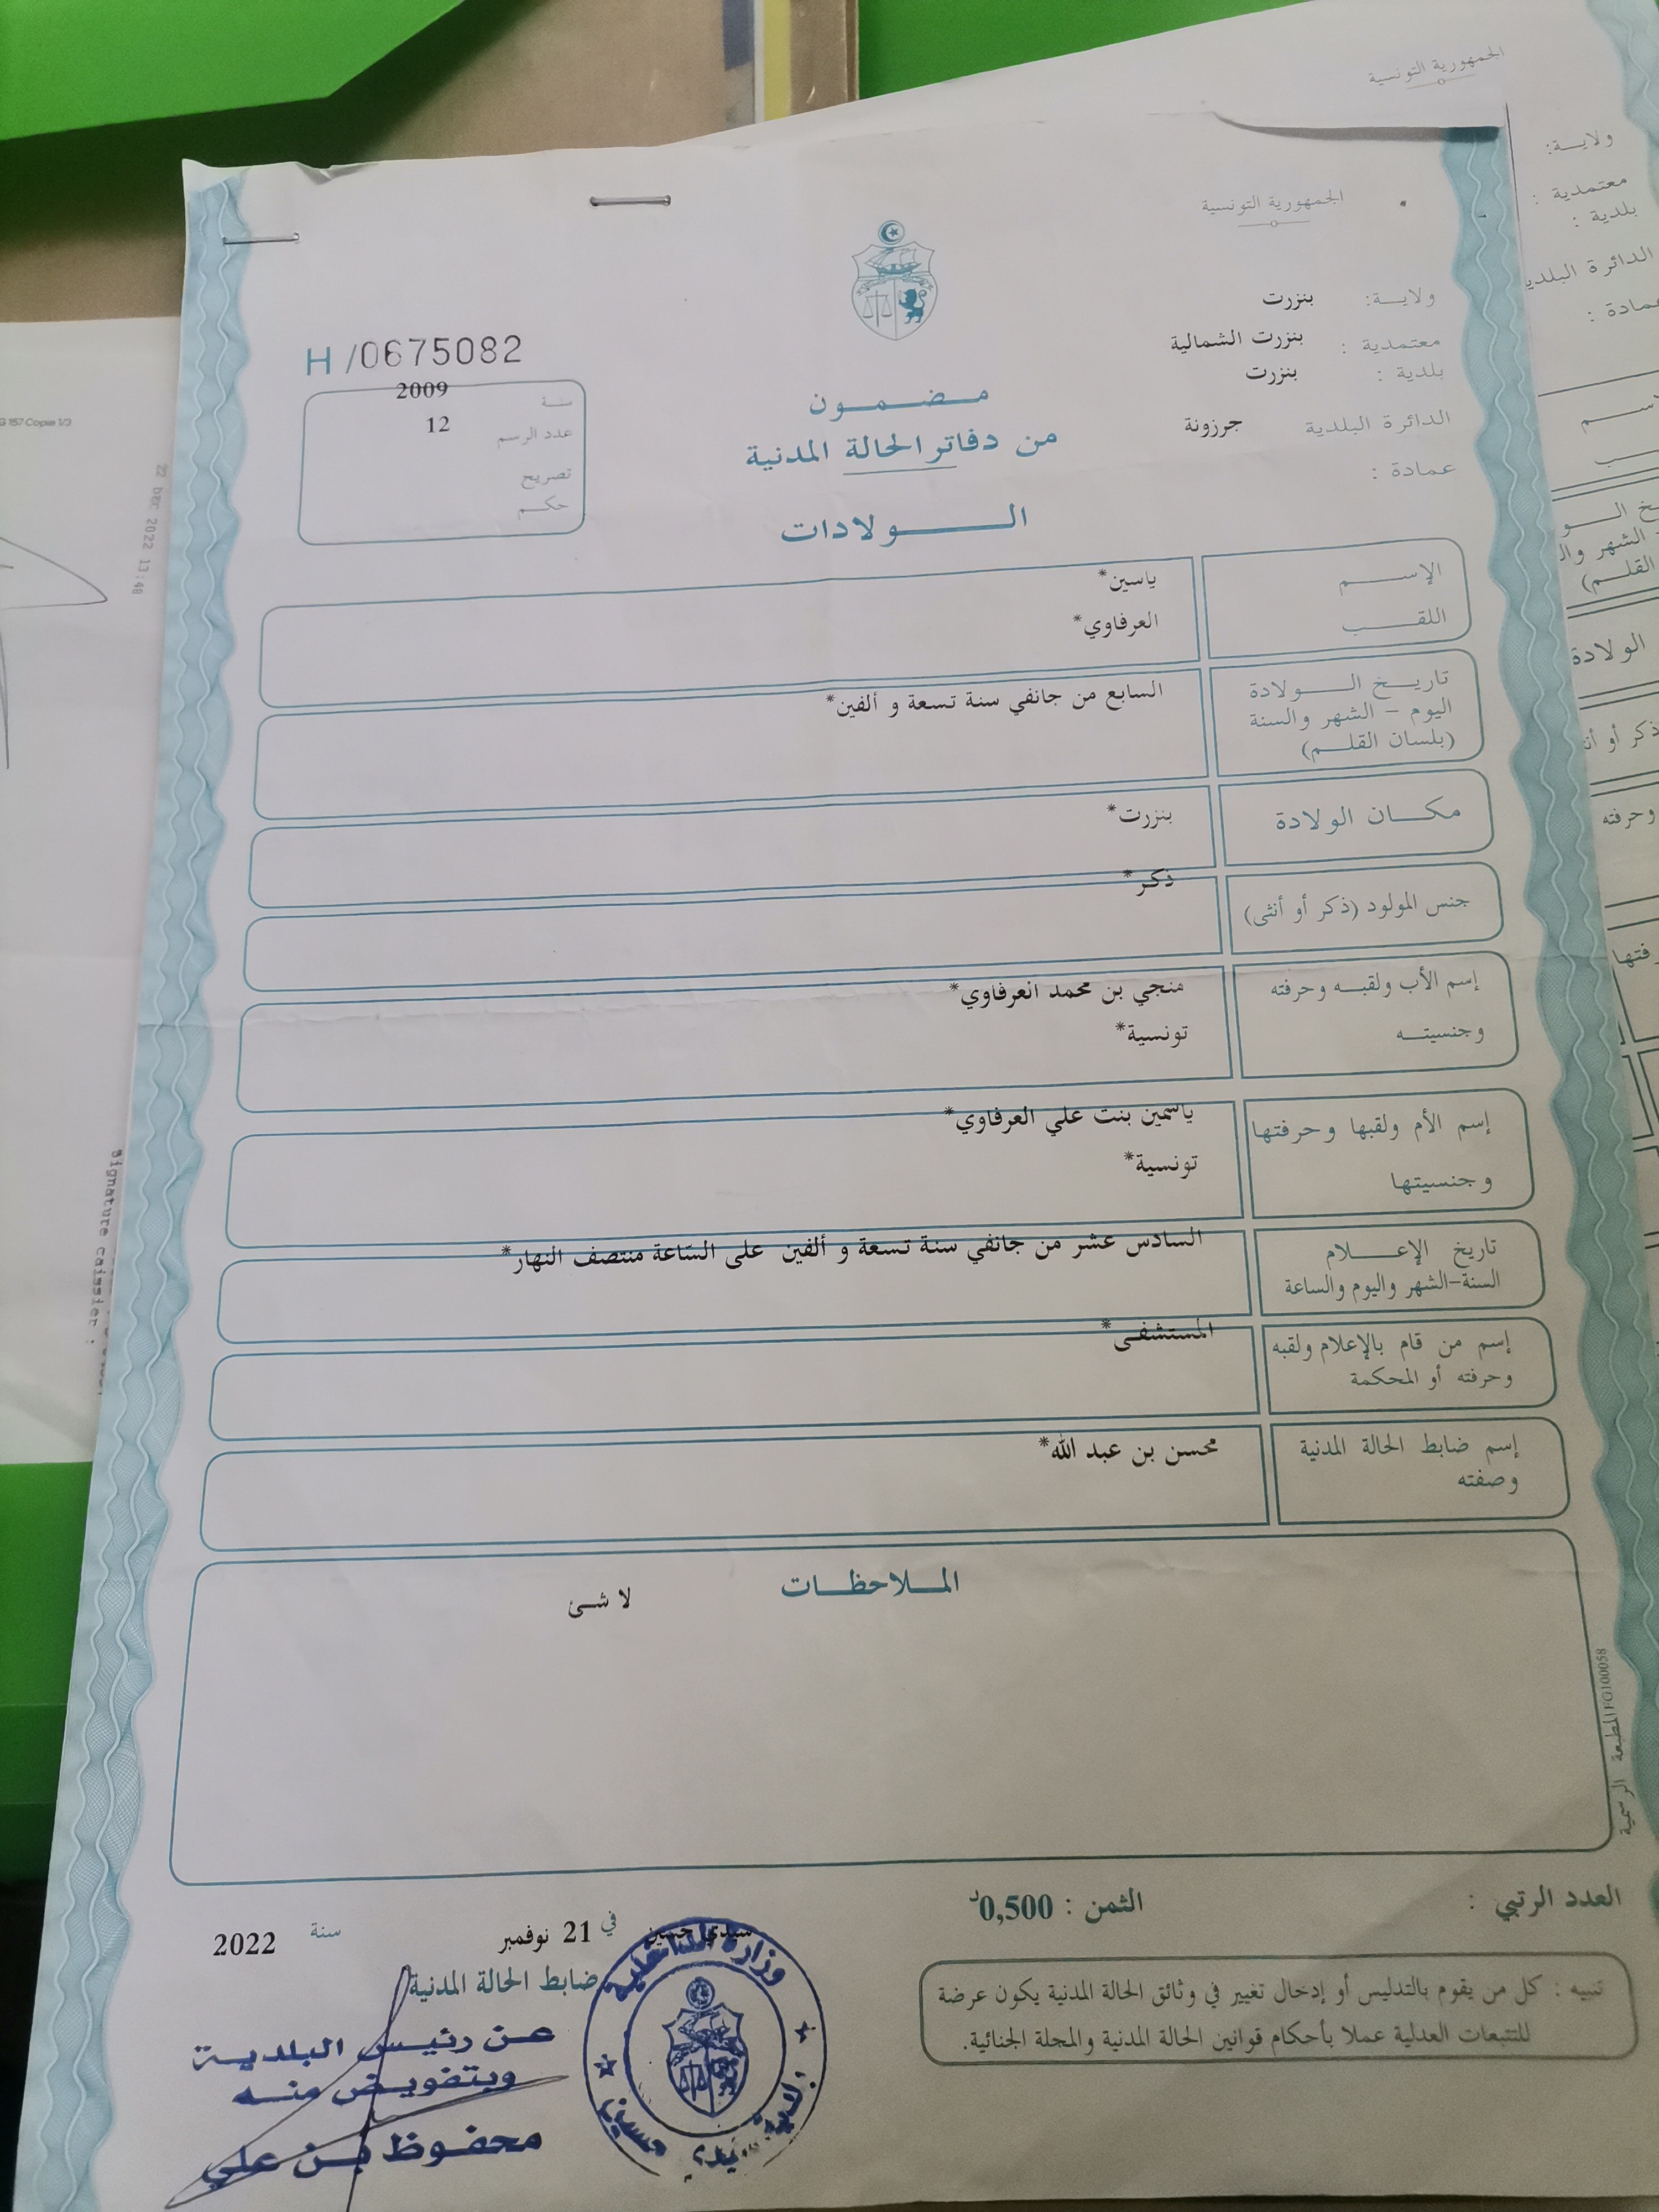 الجمهورية التونسية
ولايـــة: بنزرت
معتمدية : بنزرت الشمالية
بلدية : بنزرت
الدائرة البلدية جرزونة
عمادة :
H /0675082
سنة 2009
عدد الرسم 12
تصريح
حكم
مضمون
من دفاتر الحالة المدنية
الــولادات
الإسم ياسين*
اللقب العرفاوي*
تاريخ الولادة السابع من جانفي سنة تسعة و ألفين*
اليوم - الشهر والسنة
(بلسان القلم)
مكان الولادة بنزرت*
جنس المولود (ذكر أو أنثى) ذكر*
إسم الأب ولقبه وحرفته منجي بن محمد العرفاوي*
وجنسيته تونسية*
إسم الأم ولقبها وحرفتها ياسمين بنت علي العرفاوي*
وجنسيتها تونسية*
تاريخ الإعلام السادس عشر من جانفي سنة تسعة و ألفين على السّاعة منتصف النهار*
السنة-الشهر واليوم والساعة
إسم من قام بالإعلام ولقبه المستشفى*
وحرفته أو المحكمة
إسم ضابط الحالة المدنية محسن بن عبد الله*
وصفته
الملاحظات
لا شئ
المطبعة الرسمية FG100058
العدد الرتبي :
الثمن : 0,500د
سيدي حسين في 21 نوفمبر سنة 2022
ضابط الحالة المدنية
عن رئيس البلدية
وبتفويض منه
محفوظ بن علي
وزارة الداخلية
بلدية سيدي حسين
تنبيه : كل من يقوم بالتدليس أو إدخال تغيير في وثائق الحالة المدنية يكون عرضة
للتتبعات العدلية عملا بأحكام قوانين الحالة المدنية والمجلة الجنائية.
الجمهورية التونسية
ولايـــة:
معتمدية :
بلدية :
157 Copie 1/3
2022 13:48
signature caissier :